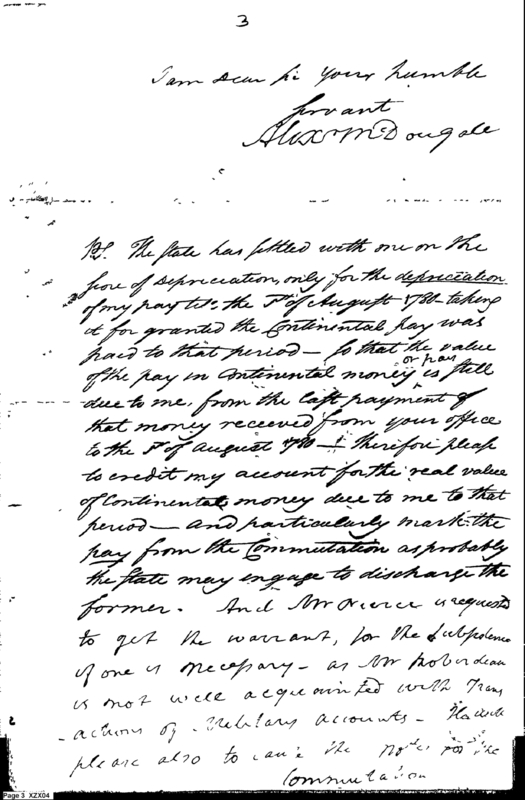 3
I am Dear Sir your humble
Servant
Alexr McDougall
PS. The State has settled with me on the
score of Depreciation, only for the depreciation
of my pay till the 1st of August 1780 taking
it for granted the Continental pay was
paid to that period — So that the value
or pay
of the pay in Continental money is still
due to me, from the last payment of
that money received from your office
to the 1st of August 1780 — I therefore please
to credit my account for the real value
of Continental money due to me to that
period — and particularly mark the
pay from the Commutation as probably
the State may engage to discharge the
former. And Mr Pierce is requested
to get the warrant, for the Subsistence
if one is necessary — as Mr Roberdeau
is not well acquainted with Trans
-actions of Military accounts —
please also to the Notes for the
Commutation
Page 3 XZX04